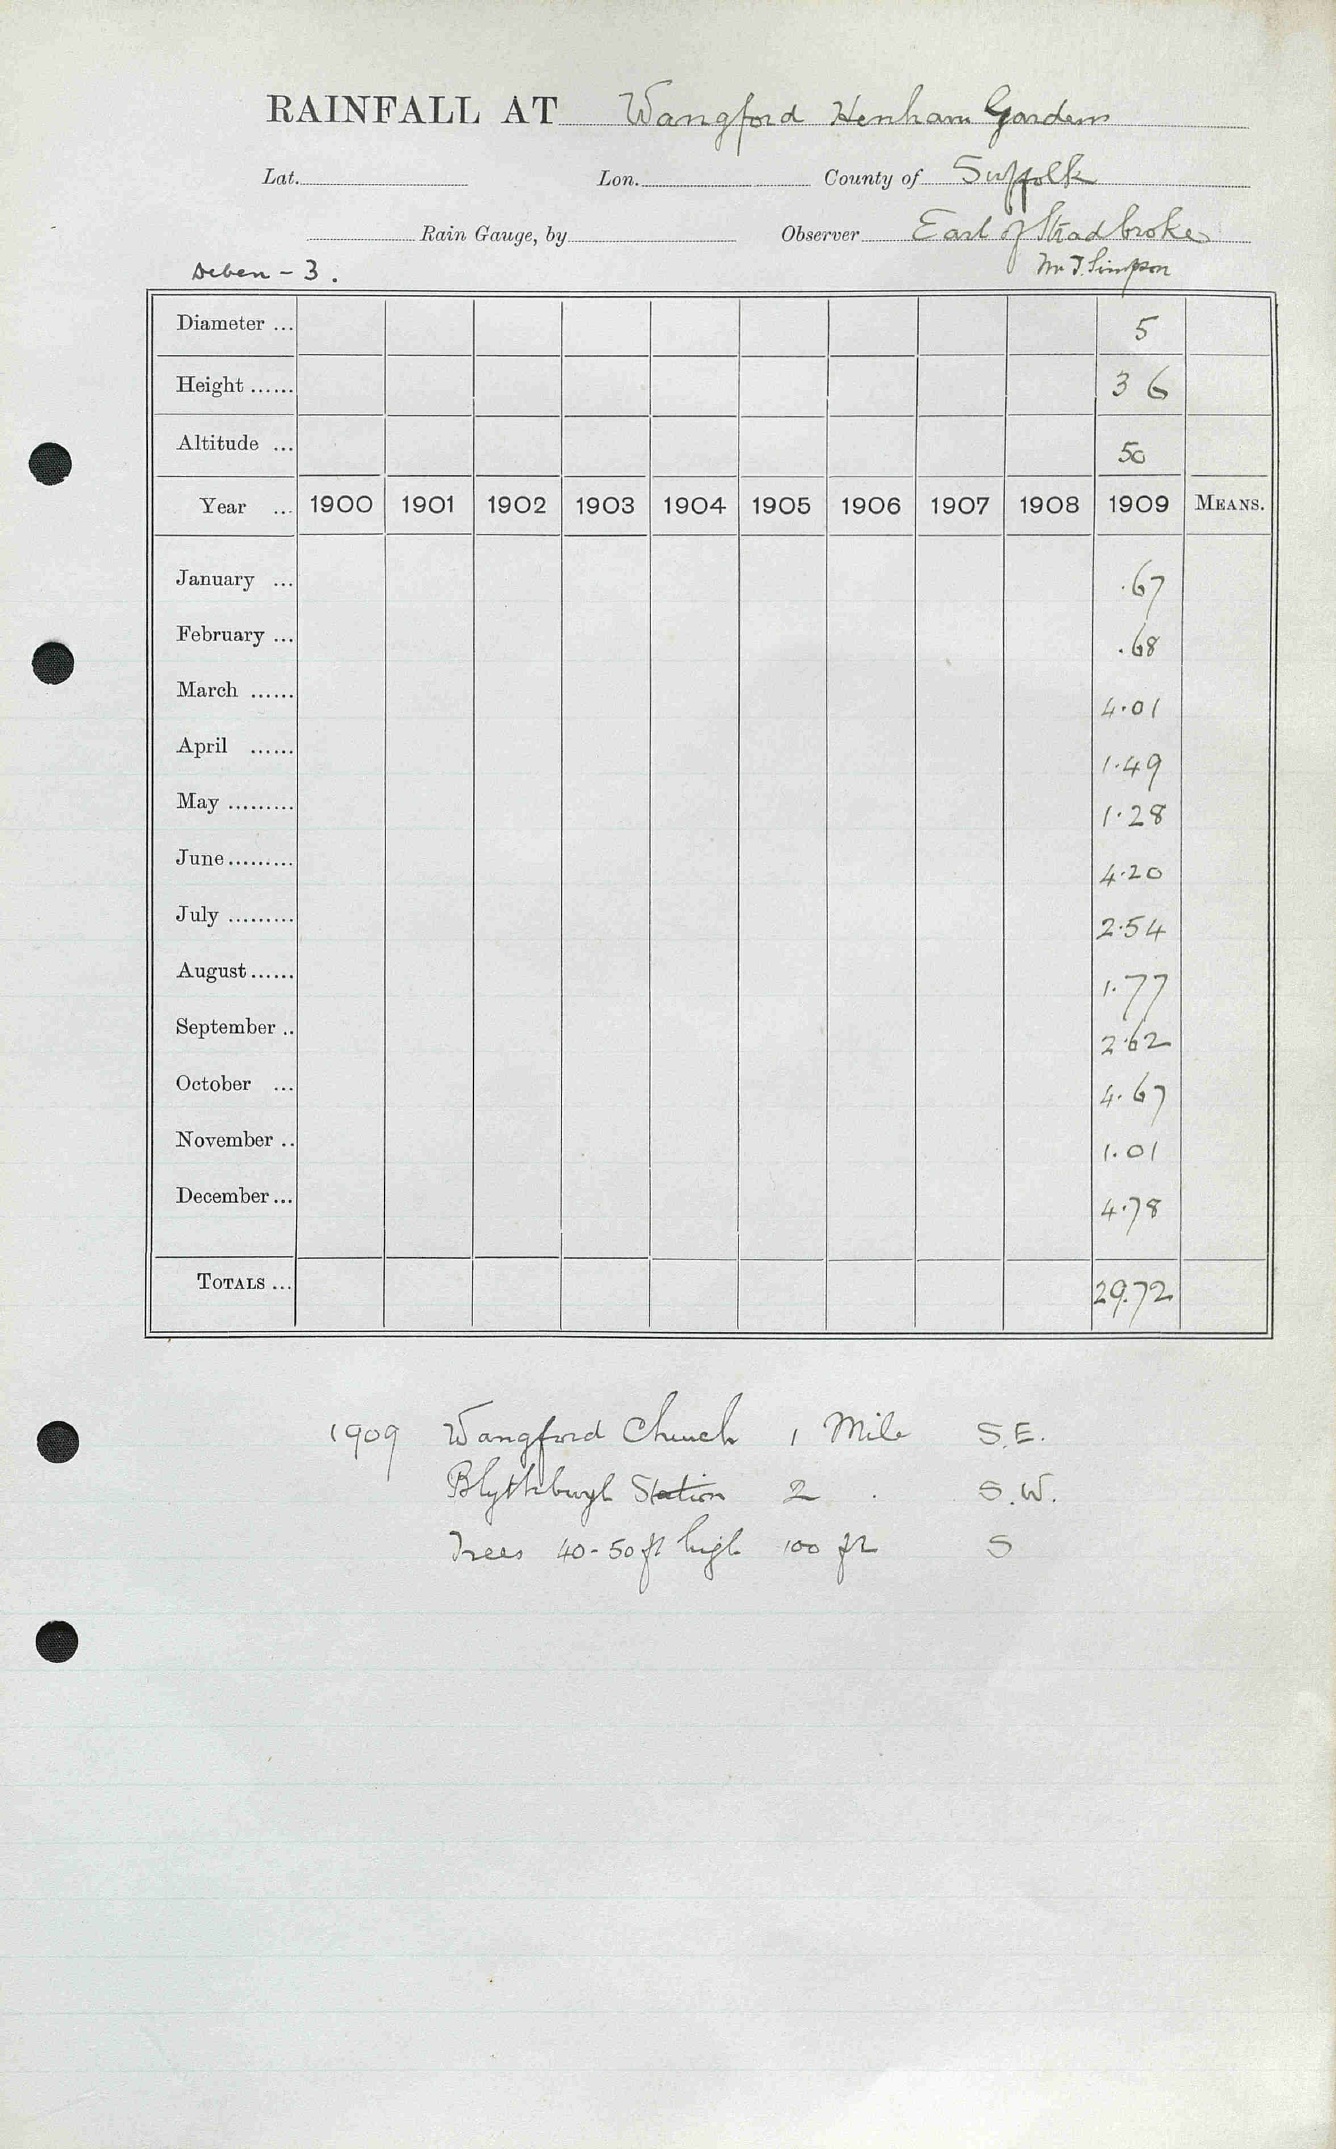 RAINFALL AT Wangford Henham Gardens
Lat. Lon. County of Suffolk
Rain Gauge, by Observer Earl of Stradbroke
Deben - 3. Mr T. Simpson
Diameter ... 5
Height ...... 3 6
Altitude ... 50
Year ... 1900 1901 1902 1903 1904 1905 1906 1907 1908 1909 MEANS.
January ... .67
February ... .68
March ...... 4.01
April ...... 1.49
May ......... 1.28
June ......... 4.20
July ......... 2.54
August ...... 1.77
September .. 2.62
October ... 4.67
November .. 1.01
December ... 4.78
TOTALS ... 29.72
1909 Wangford Church 1 Mile S.E.
Blythburgh Station 2 . S.W.
Trees 40-50 ft high 100 ft S